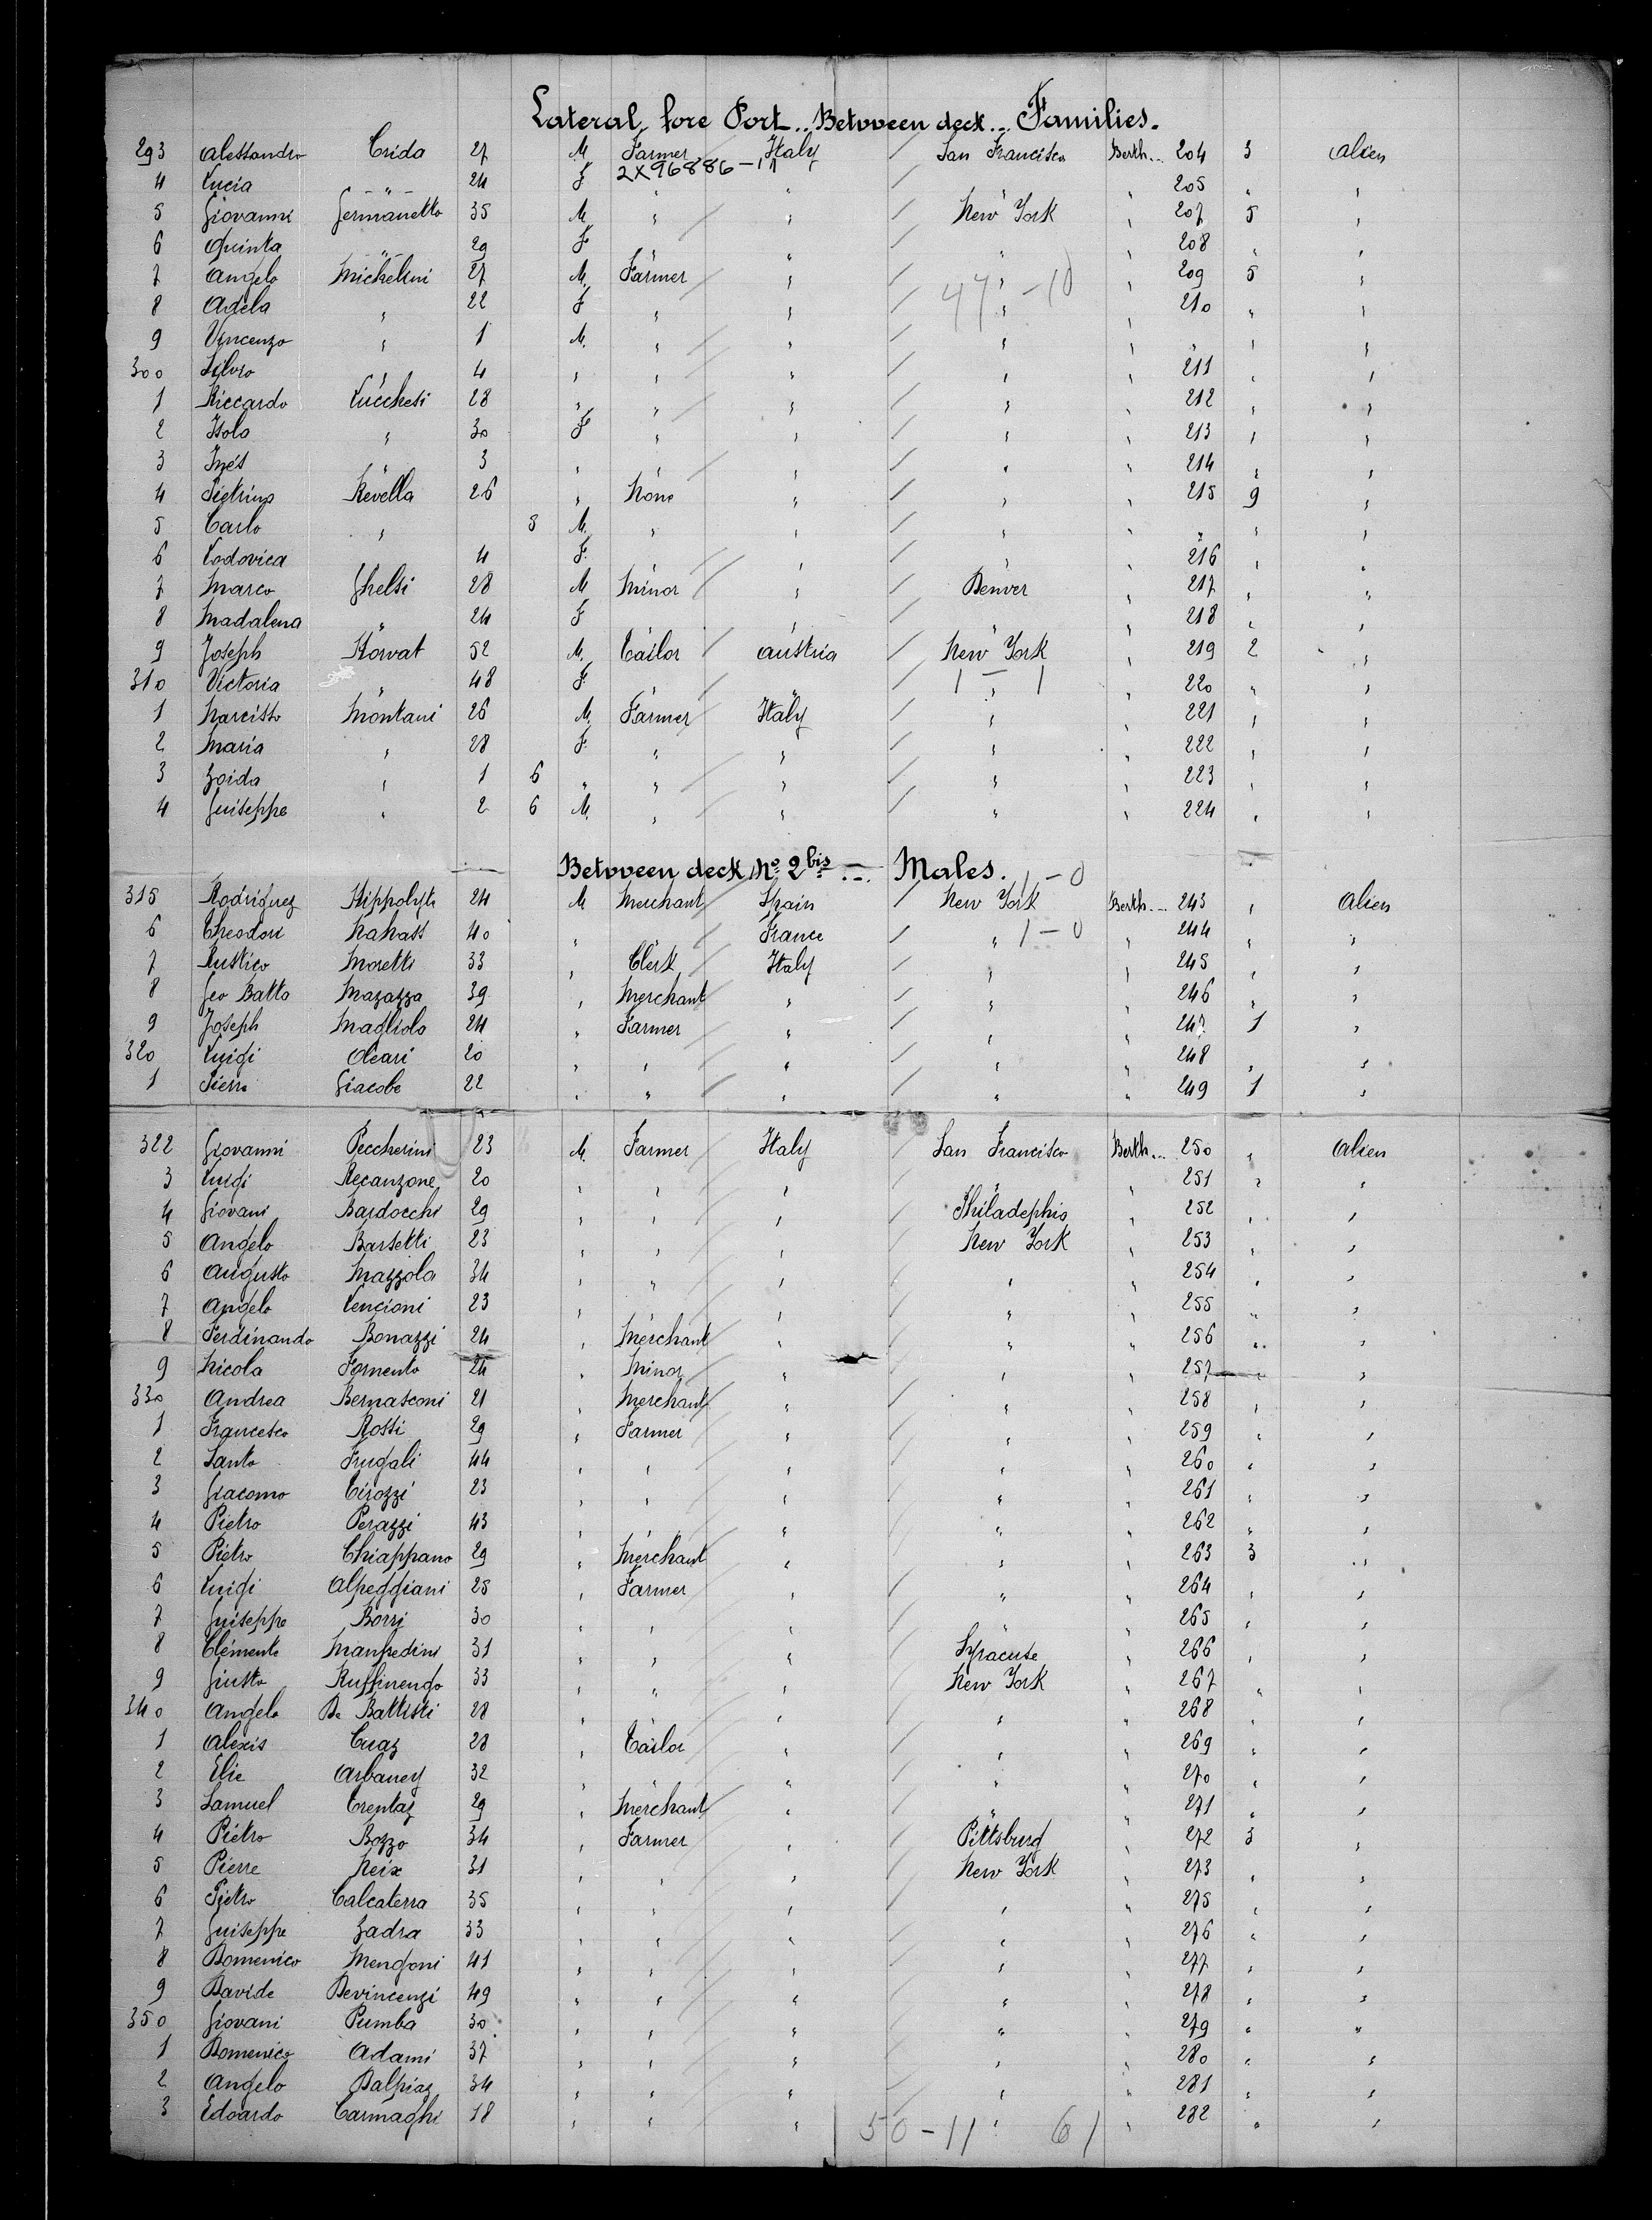 Lateral fore Port.. Betvveen deck... Families.
293 Alessandro Crida 27 M Farmer Italy / San Francisco Berth... 204 3 Alien
2X96886-1
4 Lucia -"- 24 F " " / " " 205 " "
5 Giovanni Germanetto 35 M. " / " / New York " 207 5 "
6 Quinta -"- 29 F " " / " " 208 " "
7 Angelo Michelini 27 M. Farmer / " / " " 209 5 "
47-10
8 Adela " 22 F " " / " " 210 " "
9 Vincenzo " 1 M. " " / " " " " "
300 Silvio " 4 " " " / " " 211 " "
1 Riccardo Lucchesi 28 " " " / " " 212 " "
2 Isolo " 30 F " " / " " 213 " "
3 Inés " 3 " " " / " " 214 " "
4 Revella 26 " None " / " " 215 9 "
5 Carlo " 5 M. " " / " " " " "
6 Lodovica " 4 F. " " / " " 216 " "
7 Marco Ghelsi 28 M Minor / " / Denver " 217 " "
8 Madalena " 24 F " " / " " 218 " "
9 Joseph Horvat 52 M. Tailor / Austria / New York " 219 2 "
1 - 1
310 Victoria " 48 F. " " / " " 220 " "
1 Narcisso Montani 26 M. Farmer / Italy / " " 221 " "
2 Maria " 28 F. " " / " " 222 " "
3 Zoida " 1 6 " " " / " " 223 " "
4 Guiseppe " 2 6 M. " " / " " 224 " "
Betvveen deck No 2bis ... Males.
1-0
315 Rodriguez Hippolyte 24 M Merchant Spain / New York Berth... 243 " Alien
6 Theodore Nahass 40 " " France / " 1-0 " 244 " "
7 Rustico Moretti 33 " Clerk Italy / " " 245 " "
8 Geo Batta Mazazza 39 " Merchant " / " " 246 " "
9 Joseph Magliolo 24 " Farmer " / " " 247 1 "
320 Luigi Oleari 20 " " " / " " 248 " "
1 Pierre Giacobe 22 " " " / " " 249 1 "
322 Giovanni Peccherini 23 M. Farmer Italy / San Francisco Berth... 250 " Alien
3 Luigi Recanzone 20 " " " / " " 251 " "
4 Giovani Bardocchi 29 " " " / Philadephia " 252 " "
5 Angelo Barsetti 23 " " " / New York " 253 " "
6 Augusto Mazzola 34 " " " / " " 254 " "
7 Angelo Lencioni 23 " " " / " " 255 " "
8 Ferdinando Bonazzi 24 " Merchant " / " " 256 " "
9 Nicola Fornento 24 " Minor " / " " 257 " "
330 Andrea Bernasconi 21 " Merchant " / " " 258 " "
1 Francesco Rossi 29 " Farmer " / " " 259 " "
2 Santo Frugali 44 " " " / " " 260 " "
3 Giacomo Cirozzi 23 " " " / " " 261 " "
4 Pietro Perazzi 43 " " " / " " 262 " "
5 Pietro Chiappano 29 " Merchant " / " " 263 3 "
6 Luigi Alpeggiani 25 " Farmer " / " " 264 " "
7 Guiseppe Borri 30 " " " / " " 265 " "
8 Clémente Manfredini 31 " " " / Syracuse " 266 " "
9 Giusto Ruffinengo 33 " " " / New York " 267 " "
340 Angelo De Battisti 28 " " " / " " 268 " "
1 Alexis Cuaz 28 " Tailor " / " " 269 " "
2 Elie Arbaney 32 " " " / " " 270 " "
3 Samuel Trentaz 29 " Merchant " / " " 271 " "
4 Piétro Bozzo 34 " Farmer " / Pittsburg " 272 3 "
5 Pierre Neix 31 " " " / New York " 273 " "
6 Pietro Calcaterra 35 " " " / " " 275 " "
7 Guiseppe Zadra 33 " " " / " " 276 " "
8 Domenico Mengoni 41 " " " / " " 277 " "
9 Davide Devincenzi 49 " " " / " " 278 " "
350 Giovani Pumba 30 " " " / " " 279 " "
1 Domenico Adami 37 " " " / " " 280 " "
2 Angelo Dalpiaz 34 " " " / " " 281 " "
3 Edoardo Carmaghi 18 " " " / " " 282 " "
50-11 61